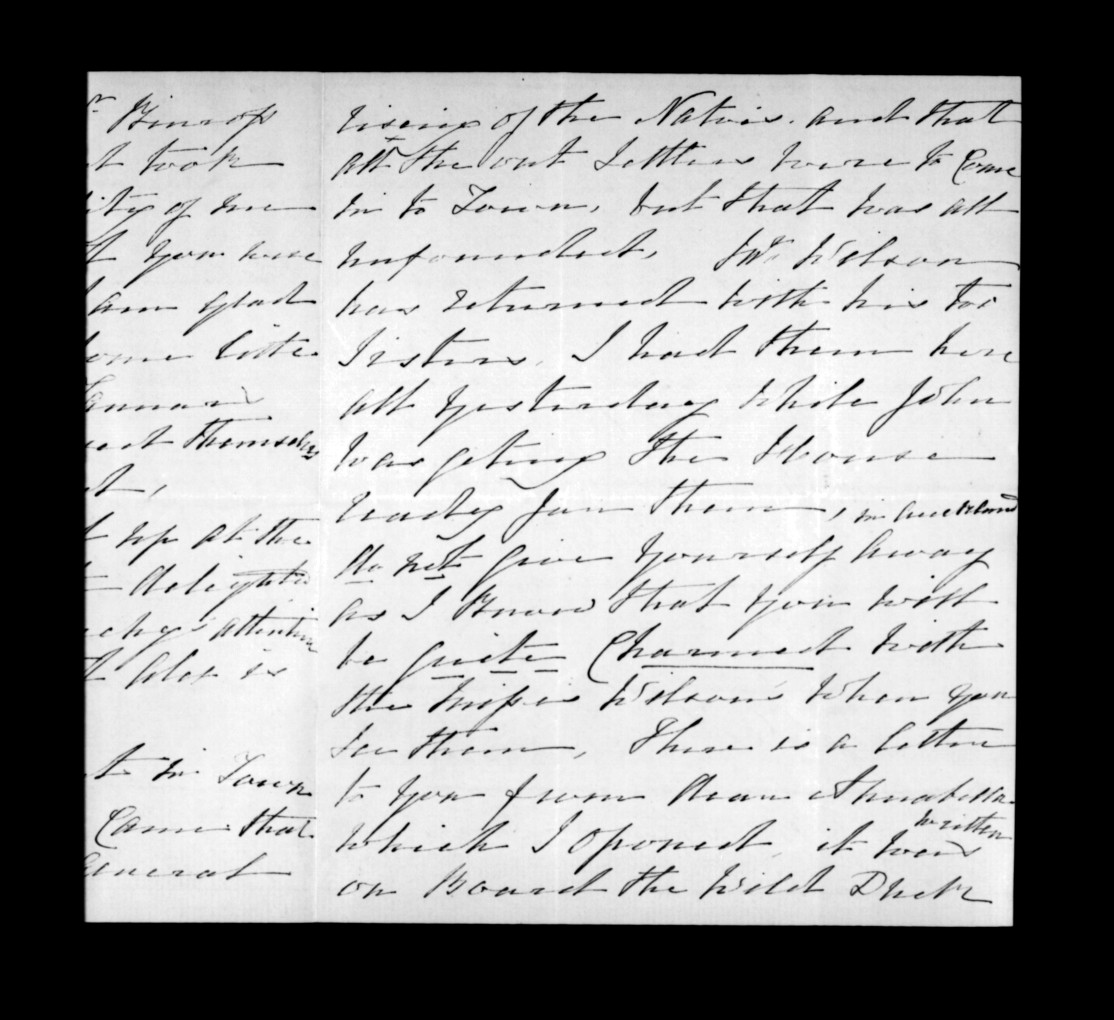 Bishops
took
of me
you were
am glad
some little
themselves
up at the
delighted
attention
Alex is
in Town
Came that
General
rising of the Natvis. and that
all the out Settlers were to Come
in to Town, but that was all
unfounded, Mr Wilson
has returned with his too
Sisters, I had them here
all yesterday While John
was geting the House
ready for them,
do not give yourself away
as I Know that you will
be quite Charmed with
the Misses Wilsons When you
See them, There is a letter
to you from dear Annabella
written
which I opened, it was
on Board the Wild Duck